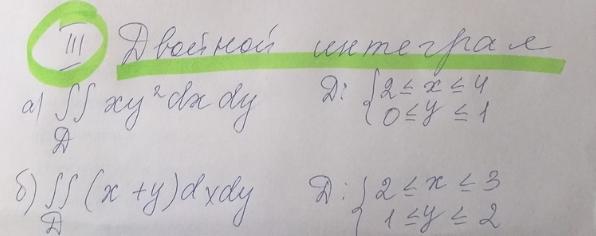 III Двойной интеграл
а) ∬ xy²dxdy Д: { 2 ≤ x ≤ 4
Д 0 ≤ y ≤ 1
б) ∬ (x + y)dxdy Д: { 2 ≤ x ≤ 3
Д 1 ≤ y ≤ 2